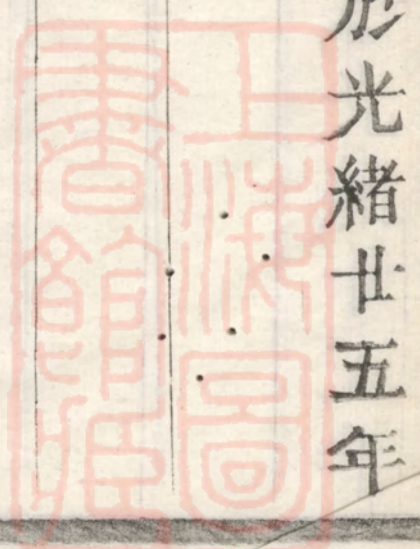 光緒廿五年
上海圖
書館藏